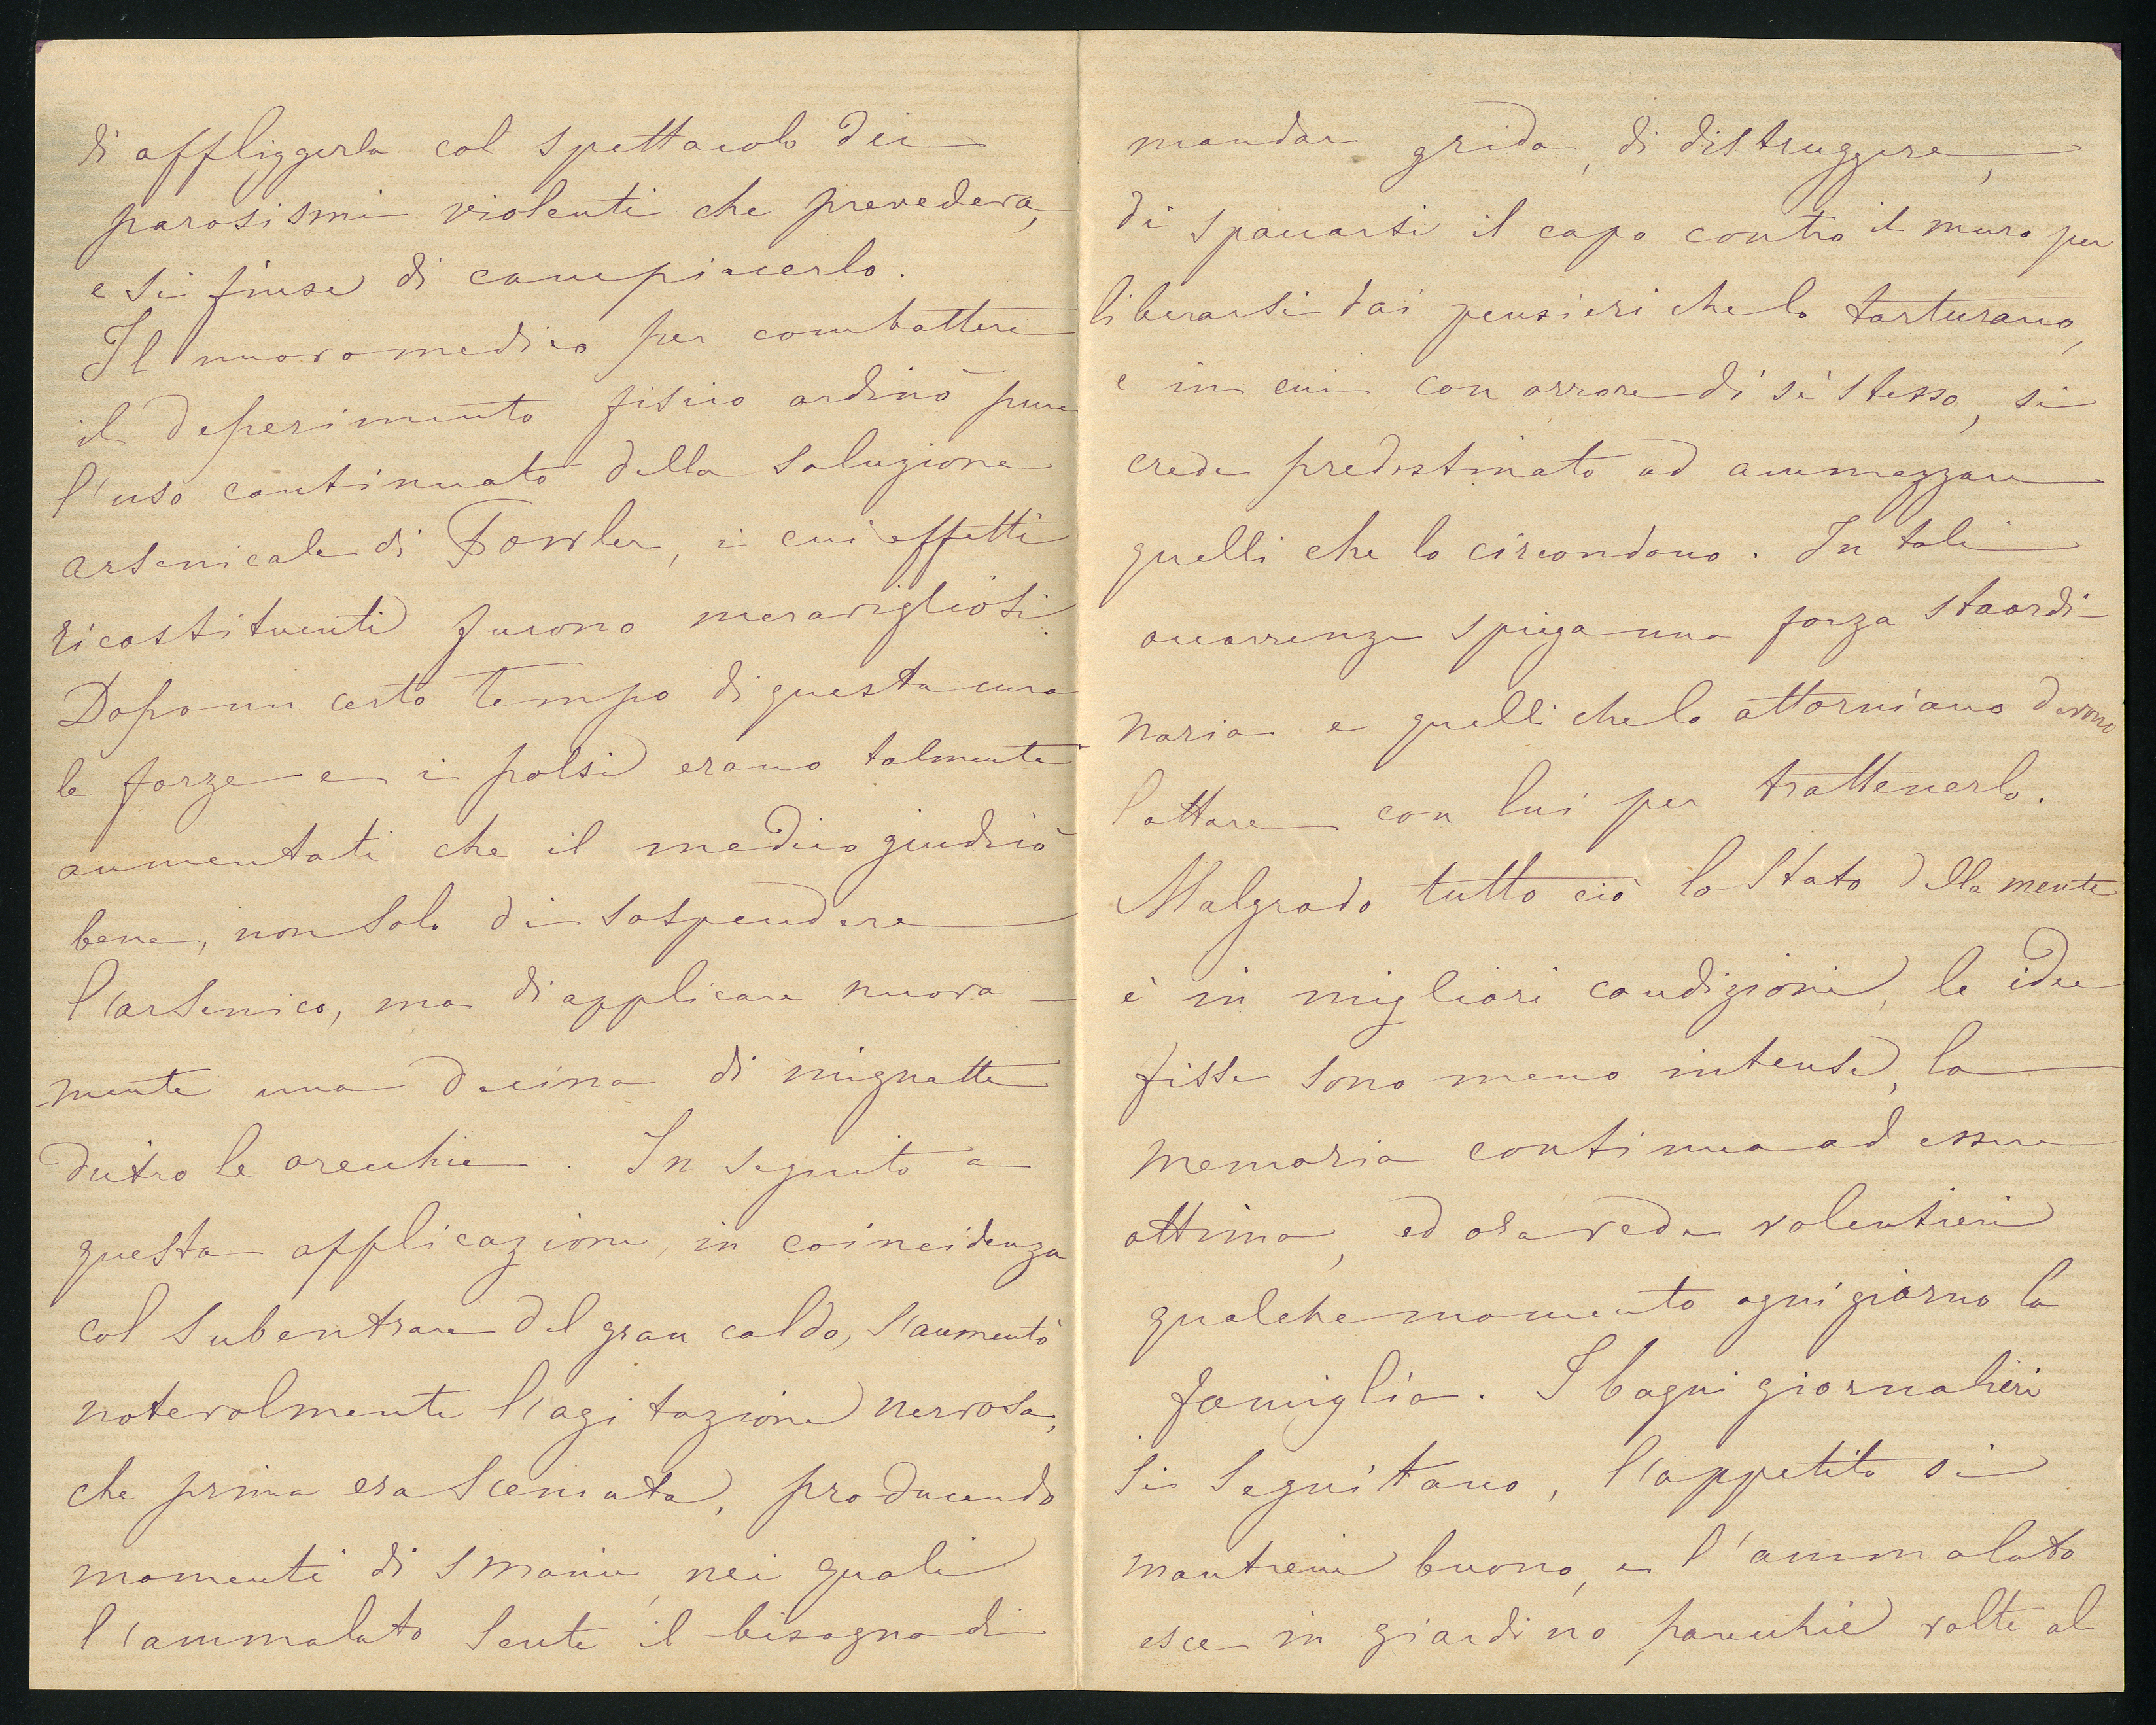 di affliggerla col spettacolo dei
parosismi violenti che prevedeva,
e si finse di compiacerlo.
Il nuovo medico per combattere
il deperimento fisico ordinò pure
l'uso continuato della soluzione
arsenicale di Fowler, i cui effetti
ricostituenti furono meravigliosi.
Dopo un certo tempo di questa cura
le forze e i polsi erano talmente
aumentati che il medico giudicò
bene, non solo di sospendere
l'arsenico, ma di applicare nuova-
-mente una decina di mignatte
dietro le orecchie. In seguito a
questa applicazione, in coincidenza
col subentrare del gran caldo, s'aumentò
notevolmente l'agitazione nervosa,
che prima era scemata, producendo
momenti di smanie, nei quali
l'ammalato sente il bisogno di
mandar grida, di distruggere,
di spaccarsi il capo contro il muro per
liberarsi dai pensieri che lo torturano,
e in cui con orrore di sè stesso, si
crede predestinato ad ammazzare
quelli che lo circondono. In tali
occorrenze spiega una forza staordi-
naria e quelli che lo attorniano devono
lottare con lui per trattenerlo.
Malgrado tutto ciò lo stato della mente
è in migliori condizioni, le idee
fisse sono meno intense, la
memoria continua ad essere
ottima, ed ora vede volentieri
qualche momento ogni giorno la
famiglia. I bagni giornalieri
si seguitano, l'appetito si
mantiene buono, e l'ammalato
esce in giardino parecchie volte al